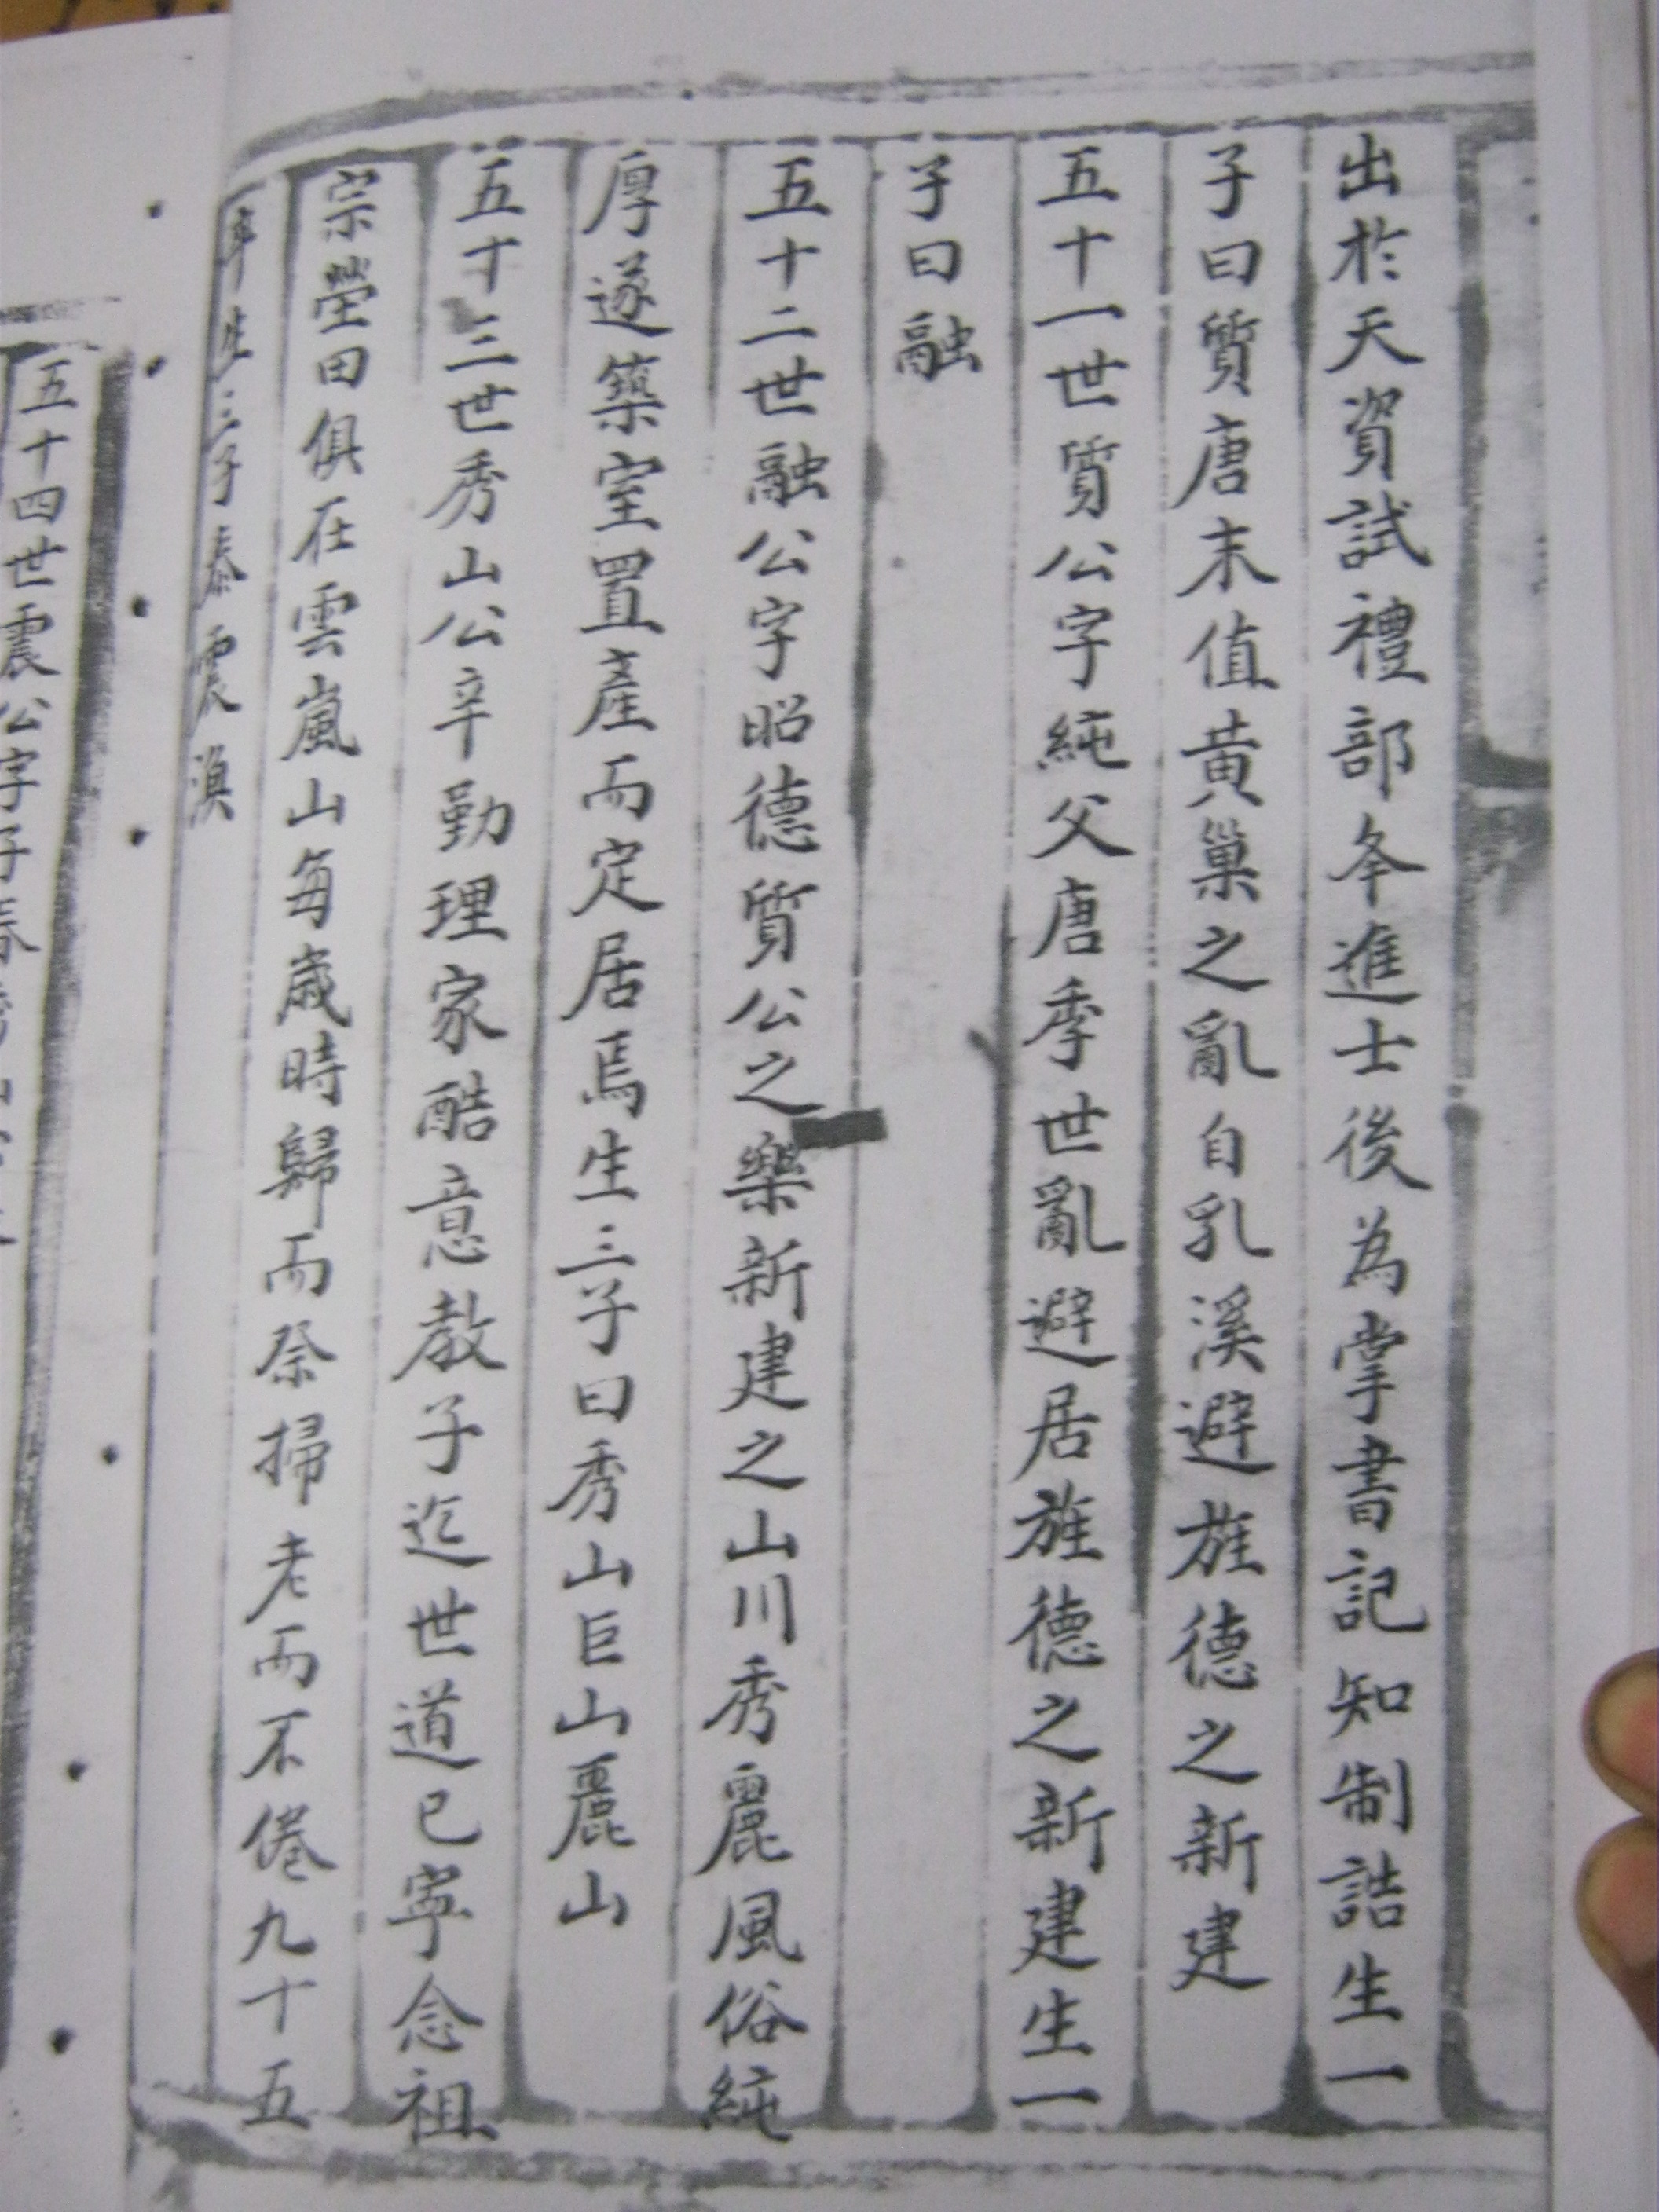 出於天資試禮部夲進士後為掌書記知制誥生一
子曰質唐末值黃巢之亂自乳溪避旌德之新建
五十一世質公字純父唐季世亂避居旌德之新建生一
子曰融
五十二世融公字昭德質公之樂新建之山川秀麗風俗純
厚遂築室置產而定居焉生三子曰秀山巨山麗山
五十三世秀山公辛勤理家酷意教子迄世道已寧念祖
宗塋田俱在雲嵐山每歲時歸而祭掃老而不倦九十五
卒生三子泰震漢
五十四世震公字子春秀山公